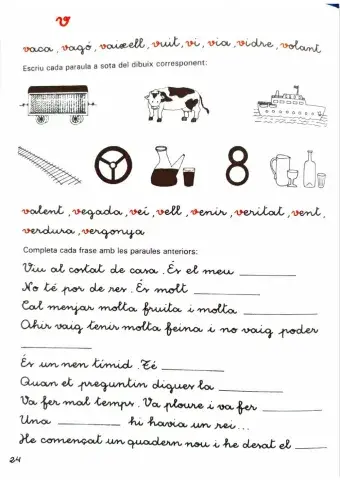 v
vaca, vagó, vaixell, vuit, vi, via, vidre, volant
Escriu cada paraula a sota del dibuix corresponent:
8
valent, vegada, veí, vell, venir, veritat, vent,
verdura, vergonya
Completa cada frase amb les paraules anteriors:
Viu al costat de casa. És el meu
No té por de res. És molt
Cal menjar molta fruita i molta
Ahir vaig tenir molta feina i no vaig poder
És un nen tímid. Té
Quan et preguntin digues la
Va fer mal temps. Va ploure i va fer
Una hi havia un rei...
He començat un quadern nou i he desat el
24